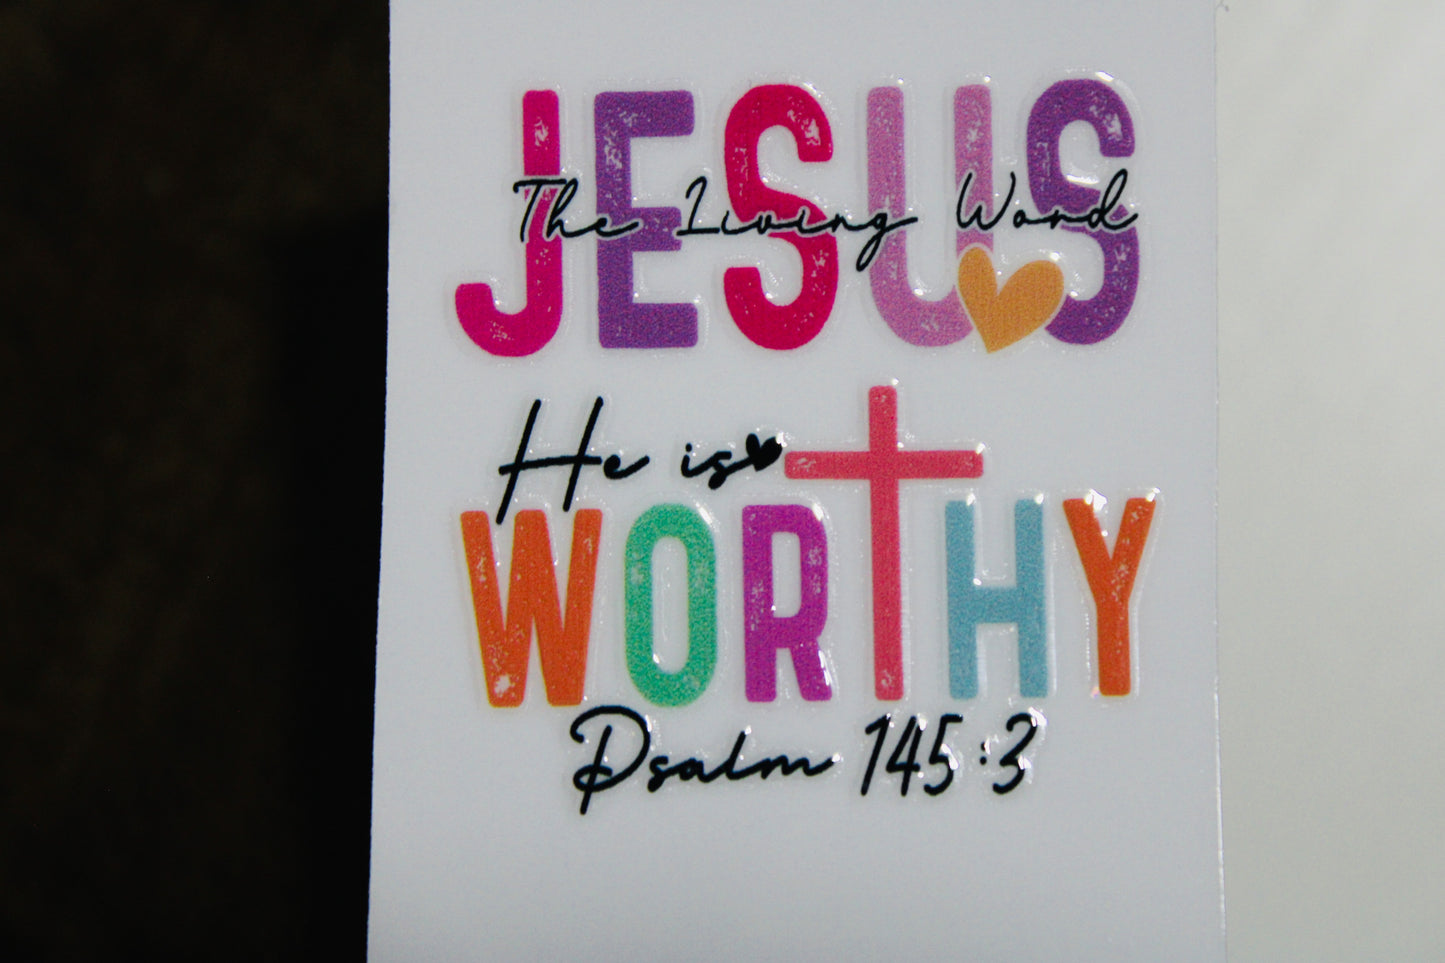 JESUS
The Living Word
He is
WORTHY
Psalm 145:3